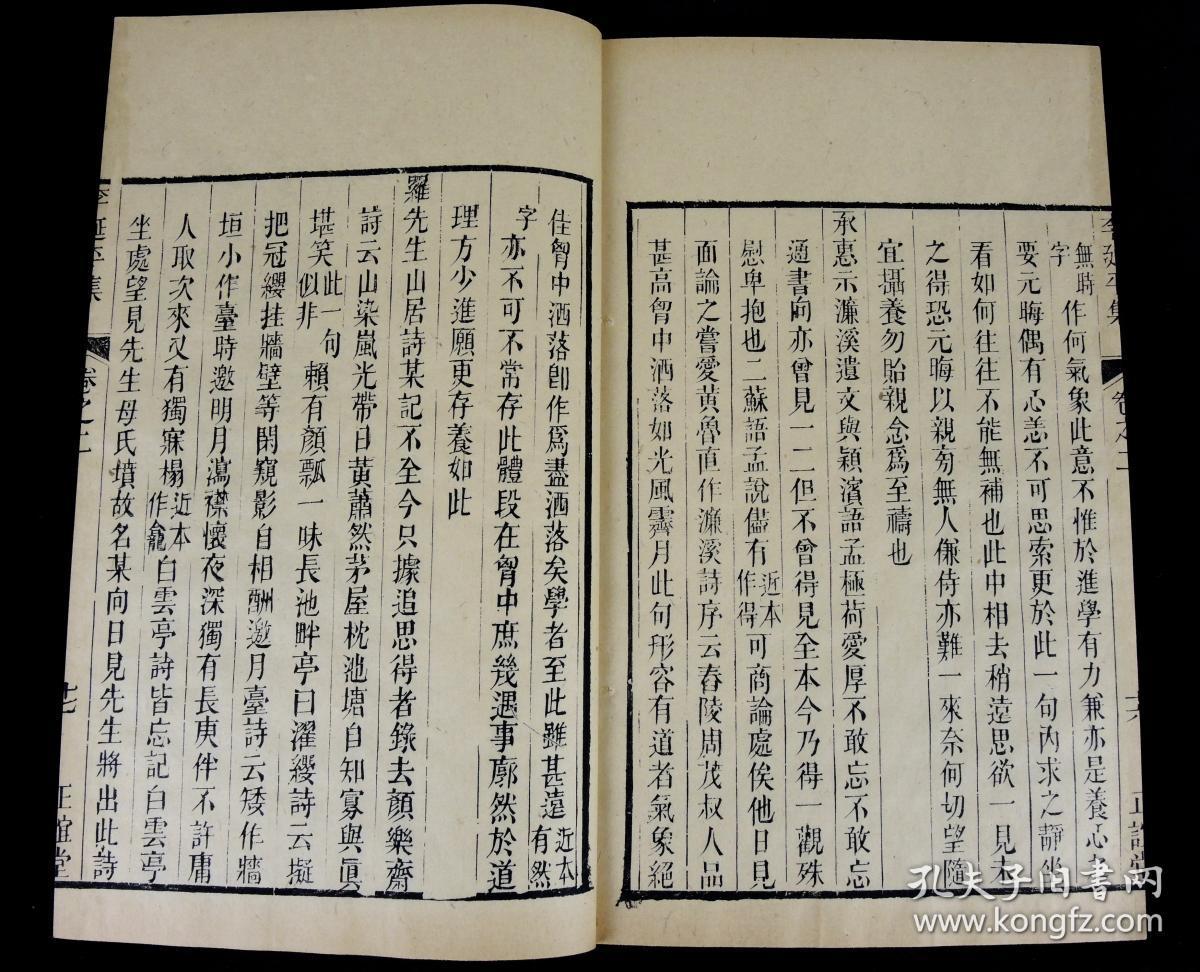 李延平集 卷之二 十六 正誼堂
無時字作何氣象此意不惟於進學有力兼亦是養心之
要元晦偶有心恙不可思索更於此一句內求之靜坐
看如何往往不能無補也此中相去稍遠思欲一見未
之得恐元晦以親旁無人傔侍亦難一來奈何切望隨
宜攝養勿貽親念為至禱也
承惠示濂溪遺文與潁濱語孟極荷愛厚不敢忘不敢忘
通書向亦曾見一二但不曾得見全本今乃得一觀殊
慰卑抱也二蘇語孟說儘有近本作得可商論處俟他日見
面論之嘗愛黃魯直作濂溪詩序云舂陵周茂叔人品
甚高胷中洒落如光風霽月此句形容有道者氣象絕
佳胷中洒落卽作爲盡洒落矣學者至此雖甚遠近本有然
字亦不可不常存此體段在胷中庶幾遇事廓然於道
理方少進願更存養如此
羅先生山居詩某記不至今只據追思得者錄去顏樂齋
詩云山染嵐光帶日黃蕭然茅屋枕池塘自知寡與眞
堪笑此一句似非賴有顏瓢一味長池畔亭曰濯纓詩云擬
把冠纓挂牆壁等閑窺影自相酬邀月臺詩云矮作牆
垣小作臺時邀明月瀉襟懷夜深獨有長庚伴不許庸
人取次來又有獨寐榻近本作龕白雲亭詩皆忘記白雲亭
坐處望見先生母氏墳故名某向日見先生將出此詩
李延平集 卷之二 十七 正誼堂
孔夫子旧书网
www.kongfz.com